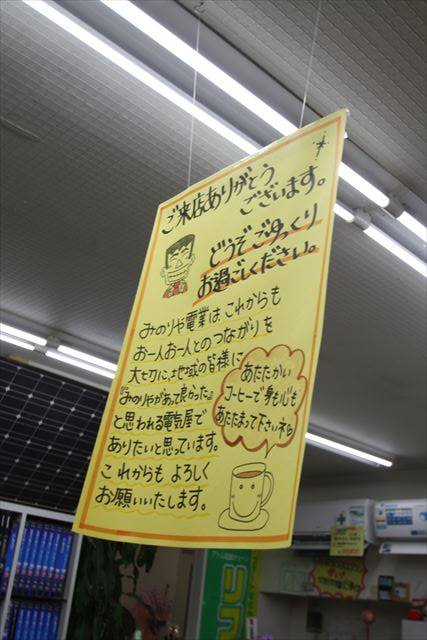 ご来店ありがとう
ございます。
どうぞごゆっくり
お過ごしください。
みのりや電業は、これからも
お一人お一人とのつながりを
大切に、地域の皆様に
『みのりやがあって良かった』
と思われる電気屋で
ありたいと思っています。
これからも よろしく
お願いいたします。
あたたかい
コーヒーで身も心も
あたたまって下さいネ